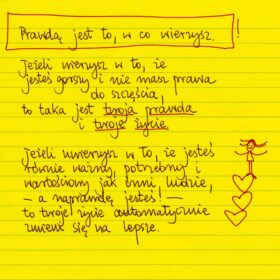 Prawdą jest to, w co wierzysz. !
Jeżeli wierzysz w to, że
jesteś gorszy i nie masz prawa
do szczęścia,
to taka jest twoja prawda
i twoje życie.
Jeżeli uwierzysz w to, że jesteś
równie ważny, potrzebny i
wartościowy jak inni ludzie,
– a naprawdę jesteś! –
to twoje życie automatycznie
zmieni się na lepsze.